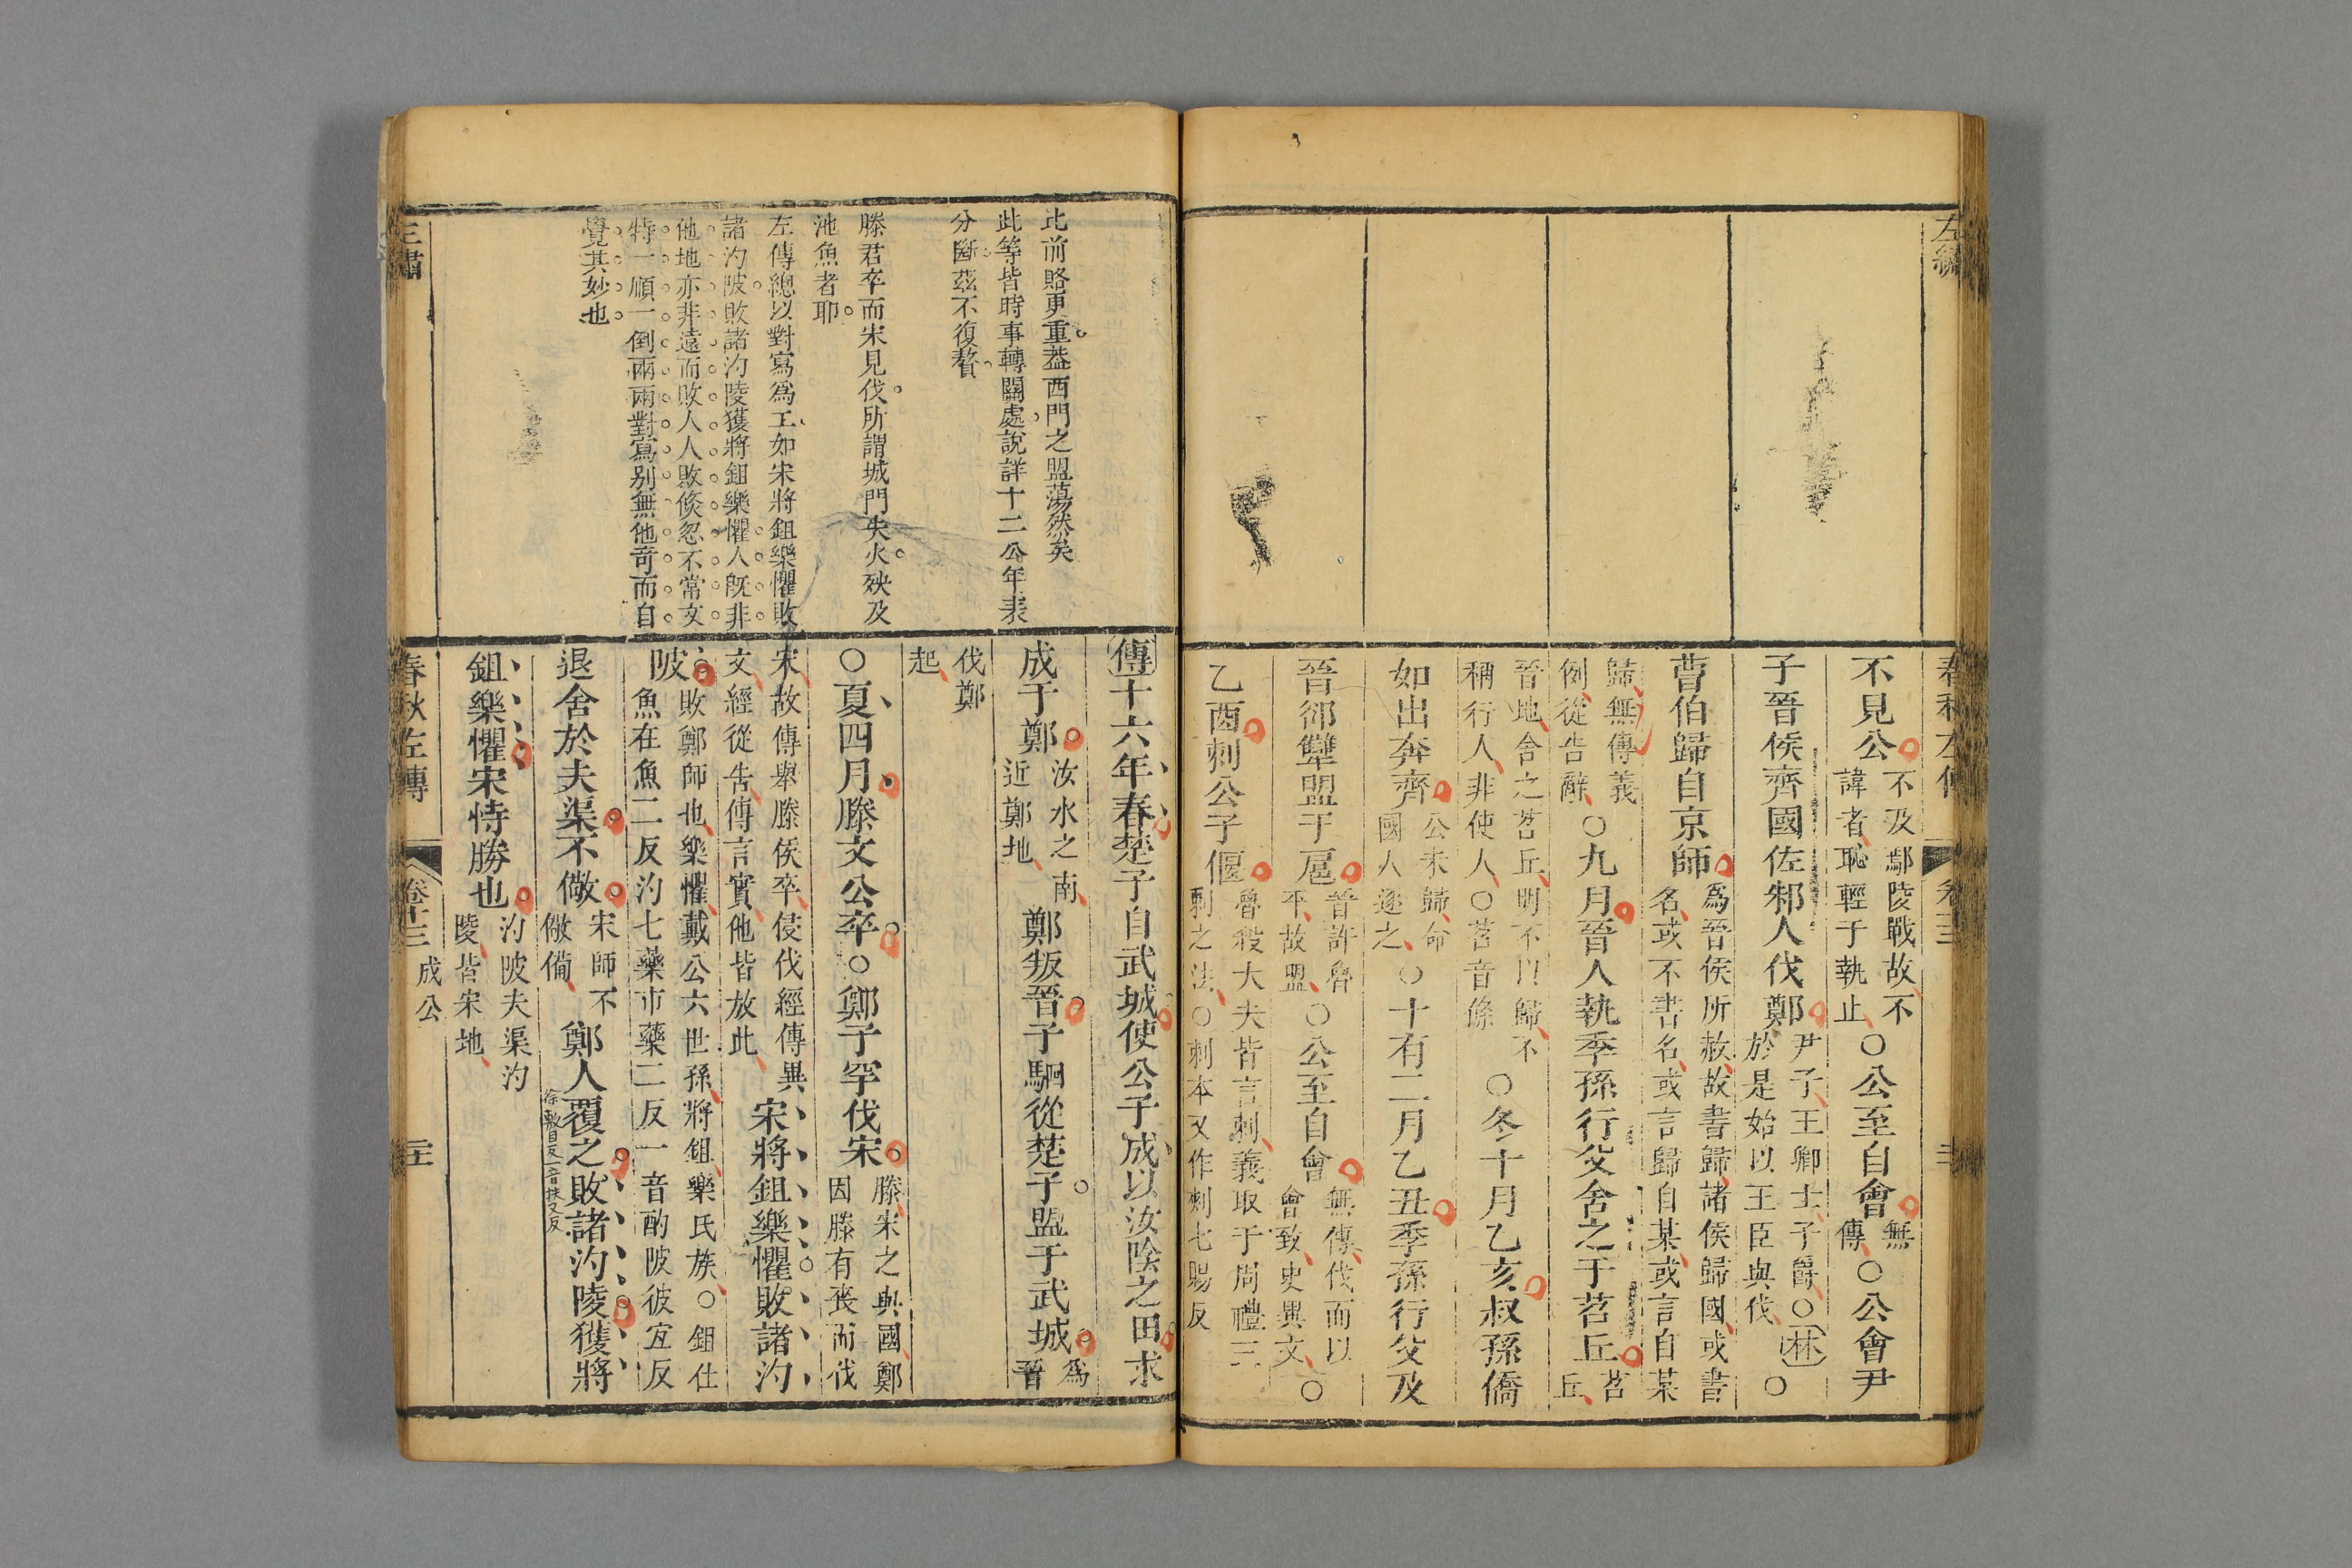 左繡
春秋左傳
卷十三
不見公不及鄢陵戰故不諱者恥輕于執止○公至自會無傳○公會尹
子晉侯齊國佐邾人伐鄭尹子王卿士子爵○林於是始以王臣與伐○
曹伯歸自京師為晉侯所赦故書歸諸侯歸國或書名或不書名或言歸自某或言自某
歸無傳義例從告辭○九月晉人執季孫行父舍之于苕丘苕丘
晉地舍之苕丘明不以歸不稱行人非使人○苕音條○冬十月乙亥叔孫僑
如出奔齊公未歸命國人逐之○十有二月乙丑季孫行父及
晉郤犨盟于扈晉許魯平故盟○公至自會無傳伐而以會致史異文○
乙酉刺公子偃魯殺大夫皆言刺義取于周禮三刺之法○刺本又作刾七賜反
此前賂更重葢西門之盟蕩然矣
此等皆時事轉關處說詳十二公年表
分斷茲不復贅
滕君卒而宋見伐所謂城門失火殃及
池魚者耶
左傳總以對寫為工如宋將鉏樂懼敗
諸汋陂敗諸汋陵獲將鉏樂懼人旣非
他地亦非遠而敗人人敗倐忽不常文
特一順一倒兩兩對寫别無他奇而自
覺其妙也
傳十六年春楚子自武城使公子成以汝陰之田求
成于鄭汝水之南近鄭地鄭叛晉子駟從楚子盟于武城為晉
伐鄭起
○夏四月滕文公卒○鄭子罕伐宋滕宋之與國鄭因滕有喪而伐
宋故傳舉滕侯卒侵伐經傳異文經從告傳言實他皆放此宋將鉏樂懼敗諸汋
陂敗鄭師也樂懼戴公六世孫將鉏樂氏族○鉏仕魚在魚二反汋七藥市藥二反一音酌陂彼宜反
退舍於夫渠不儆宋師不儆備鄭人覆之敗諸汋陵獲將
徐敷目反一音扶又反
鉏樂懼宋恃勝也汋陂夫渠汋陵皆宋地
春秋左傳
卷十三
成公